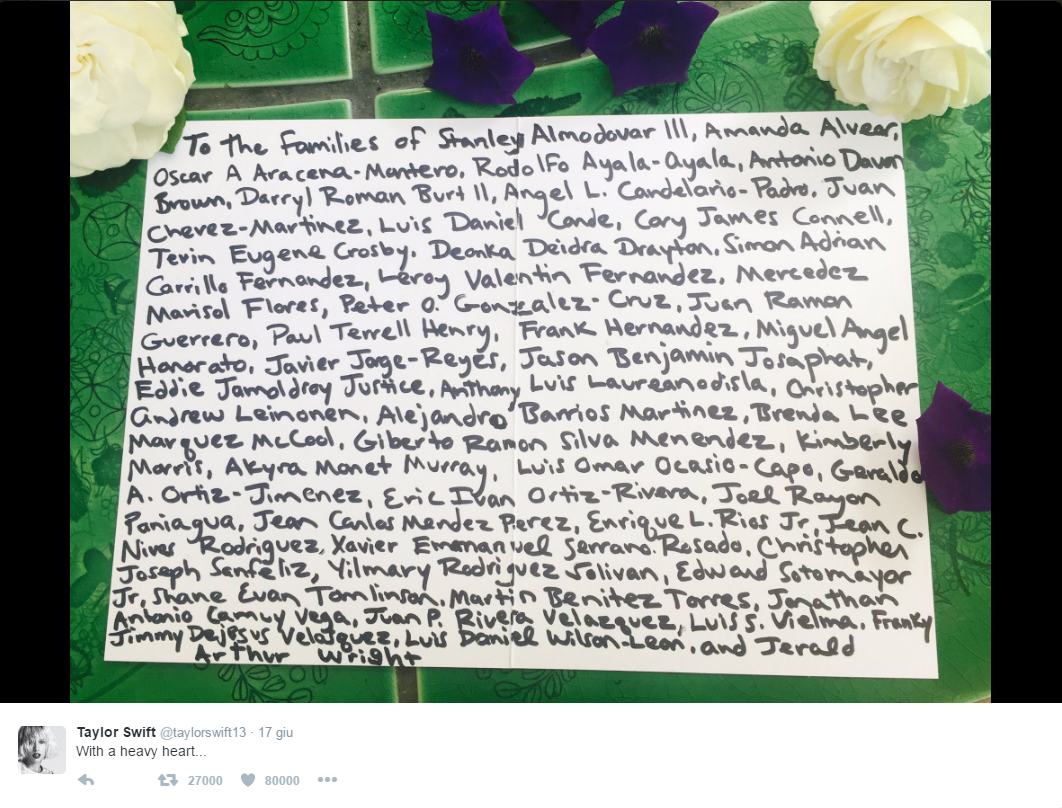 To the Families of Stanley Almodovar III, Amanda Alvear,
Oscar A Aracena-Montero, Rodolfo Ayala-ayala, Antonio Davon
Brown, Darryl Roman Burt II, Angel L. Candelario-Padro, Juan
Chevez-Martinez, Luis Daniel Conde, Cory James Connell,
Tevin Eugene Crosby, Deonka Deidra Drayton, Simon Adrian
Carrillo Fernandez, Leroy Valentin Fernandez, Mercedez
Marisol Flores, Peter O. Gonzalez-Cruz, Juan Ramon
Guerrero, Paul Terrell Henry, Frank Hernandez, Miguel Angel
Honorato, Javier Jorge-Reyes, Jason Benjamin Josaphat,
Eddie Jamoldroy Justice, Anthony Luis Laureanodisla, Christopher
Andrew Leinonen, Alejandro Barrios Martinez, Brenda Lee
Marquez McCool, Giberto Ramon Silva Menendez, Kimberly
Morris, Akyra Monet Murray, Luis Omar Ocasio-Capo, Geraldo
A. Ortiz-Jimenez, Eric Ivan Ortiz-Rivera, Joel Rayon
Paniagua, Jean Carlos Mendez Perez, Enrique L. Rios Jr, Jean C.
Nives Rodriguez, Xavier Emmanuel Serrano. Rosado, Christopher
Joseph Sanfeliz, Yilmary Rodriguez Solivan, Edward Sotomayor
Jr, Shane Evan Tomlinson, Martin Benitez Torres, Jonathan
Antonio Camuy Vega, Juan P. Rivera Velazquez, Luis S. Vielma, Franky
Jimmy Dejesus Velazquez, Luis Daniel Wilson-Leon, and Jerald
Arthur Wright
Taylor Swift @taylorswift13 · 17 giu
With a heavy heart...
27000 80000